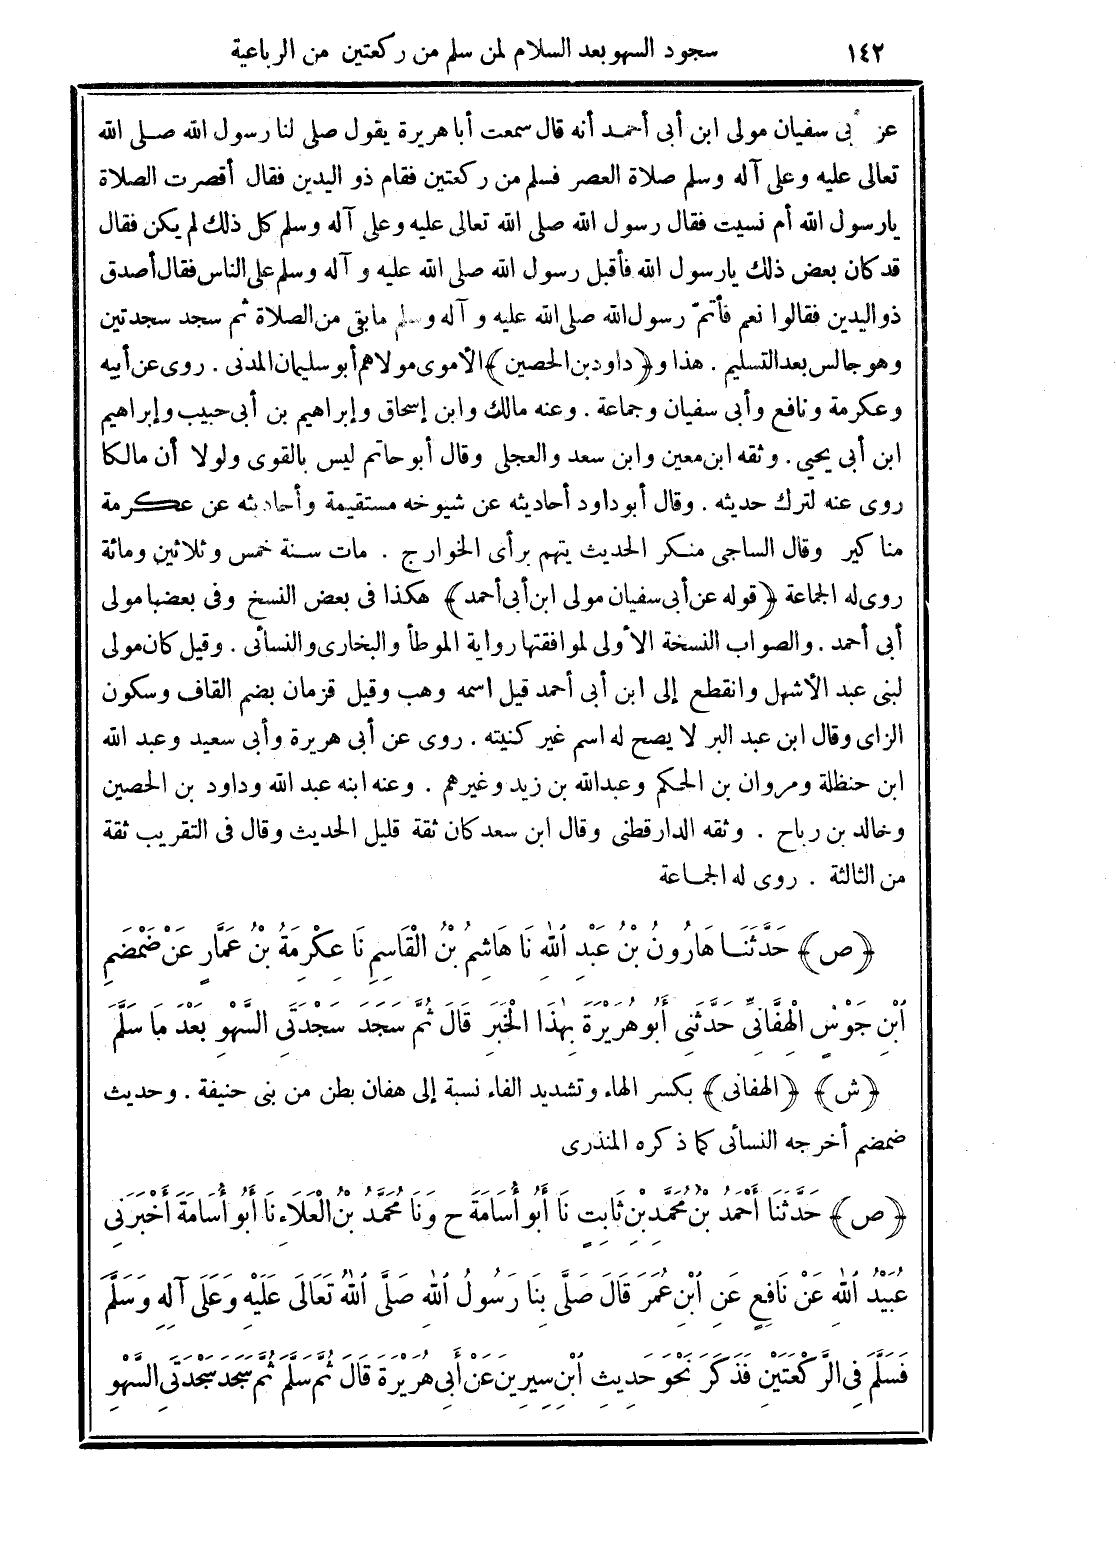 ١٤٢ سجود السهو بعد السلام لمن سلم من ركعتين من الرباعية
عن أبى سفيان مولى ابن أبى أحمد أنه قال سمعت أبا هريرة يقول صلى لنا رسول الله صلى الله
تعالى عليه وعلى آله وسلم صلاة العصر فسلم من ركعتين فقام ذو اليدين فقال أقصرت الصلاة
يارسول الله أم نسيت فقال رسول الله صلى الله تعالى عليه وعلى آله وسلم كل ذلك لم يكن فقال
قد كان بعض ذلك يارسول الله فأقبل رسول الله صلى الله عليه و آله وسلم على الناس فقال أصدق
ذو اليدين فقالوا نعم فأتمّ رسول الله صلى الله عليه و آله وسلم مابقى من الصلاة ثم سجد سجدتين
وهو جالس بعد التسليم . هذا و﴿داود بن الحصين﴾ الأموى مولاهم أبو سليمان المدنى . روى عن أبيه
وعكرمة ونافع وأبى سفيان وجماعة . وعنه مالك وابن إسحاق وإبراهيم بن أبى حبيب وإبراهيم
ابن أبى يحيى . وثقه ابن معين وابن سعد والعجلى وقال أبو حاتم ليس بالقوى ولولا أن مالكا
روى عنه لترك حديثه . وقال أبو داود أحاديثه عن شيوخه مستقيمة وأحاديثه عن عكرمة
مناكير وقال الساجى منكر الحديث يتهم برأى الخوارج . مات سنة خمس وثلاثين ومائة
روى له الجماعة ﴿قوله عن أبى سفيان مولى ابن أبى أحمد﴾ هكذا فى بعض النسخ وفى بعضها مولى
أبى أحمد . والصواب النسخة الأولى لموافقتها رواية الموطأ والبخارى والنسائى . وقيل كان مولى
لبنى عبد الأشهل وانقطع إلى ابن أبى أحمد قيل اسمه وهب وقيل قزمان بضم القاف وسكون
الزاى وقال ابن عبد البر لا يصح له اسم غير كنيته . روى عن أبى هريرة وأبى سعيد وعبد الله
ابن حنظلة ومروان بن الحكم وعبدالله بن زيد وغيرهم . وعنه ابنه عبد الله وداود بن الحصين
وخالد بن رباح . وثقه الدارقطنى وقال ابن سعد كان ثقة قليل الحديث وقال فى التقريب ثقة
من الثالثة . روى له الجماعة
﴿ص﴾ حَدَّثَنَا هَارُونُ بْنُ عَبْدِ اللهِ نَا هَاشِمُ بْنُ الْقَاسِمِ نَا عِكْرِمَةُ بْنُ عَمَّارٍ عَنْ ضَمْضَمِ
ابْنِ جَوْسٍ الْهِفَّانِىِّ حَدَّثَنِى أَبُو هُرَيْرَةَ بِهٰذَا الْخَبَرِ قَالَ ثُمَّ سَجَدَ سَجْدَتَىِ السَّهْوِ بَعْدَ مَا سَلَّمَ
﴿ش﴾ ﴿الهفانى﴾ بكسر الهاء وتشديد الفاء نسبة إلى هفان بطن من بنى حنيفة . وحديث
ضمضم أخرجه النسائى كما ذكره المنذرى
﴿ص﴾ حَدَّثَنَا أَحْمَدُ بْنُ مُحَمَّدِ بْنِ ثَابِتٍ نَا أَبُو أُسَامَةَ ح وَنَا مُحَمَّدُ بْنُ الْعَلَاءِ نَا أَبُو أُسَامَةَ أَخْبَرَنِى
عُبَيْدُ اللهِ عَنْ نَافِعٍ عَنِ ابْنِ عُمَرَ قَالَ صَلَّى بِنَا رَسُولُ اللهِ صَلَّى اللهُ تَعَالَى عَلَيْهِ وَعَلَى آلِهِ وَسَلَّمَ
فَسَلَّمَ فِى الرَّكْعَتَيْنِ فَذَكَرَ نَحْوَ حَدِيثِ ابْنِ سِيرِينَ عَنْ أَبِى هُرَيْرَةَ قَالَ ثُمَّ سَلَّمَ ثُمَّ سَجَدَ سَجْدَتَىِ السَّهْوِ